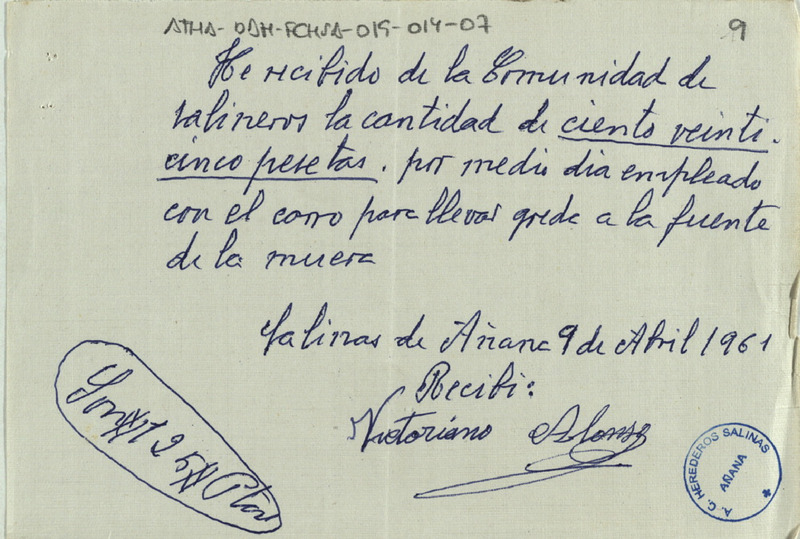 ATHA-DAH-FCHSA-019-014-07
9
He recibido de la Comunidad de
salineros la cantidad de ciento veinti-
cinco pesetas. por medio dia empleado
con el carro para llevar greda a la fuente
de la muera
Salinas de Añana 9 de Abril 1961
Recibi:
Victoriano Alonso
Son #125# Ptas
A. C. HEREDEROS SALINAS
AÑANA